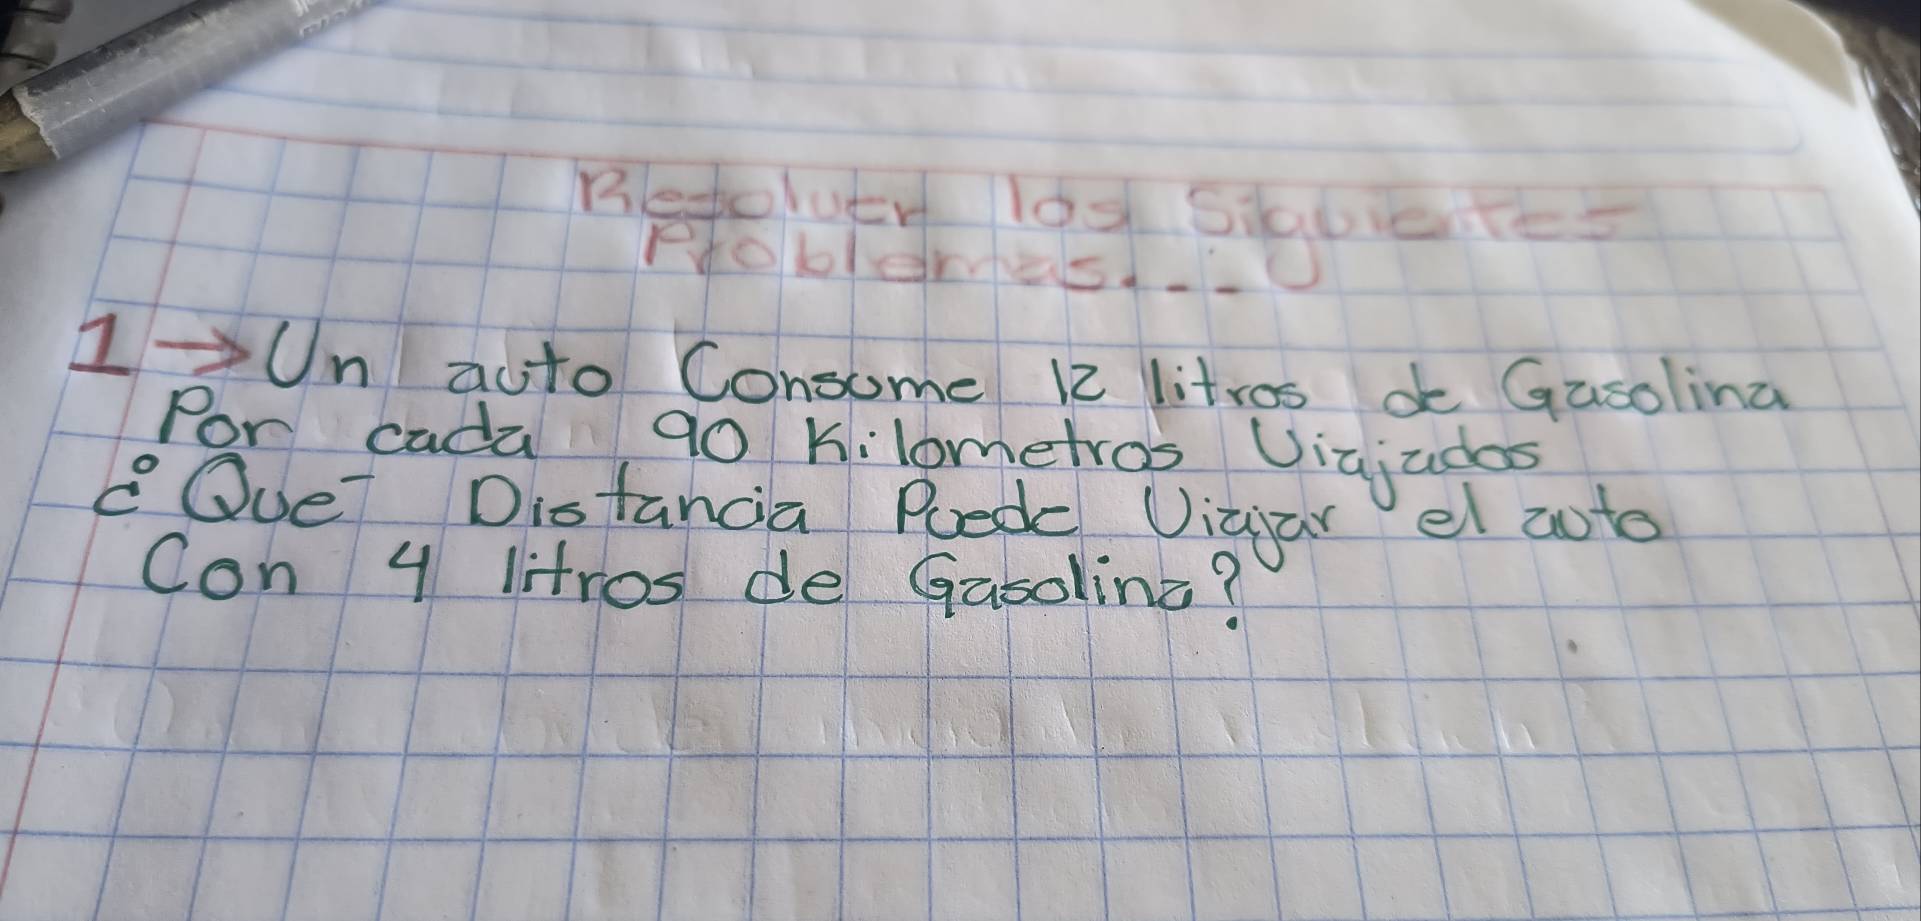 Resolver los Siguientes
Problemas....
1→ Un auto Consume 12 litros de Gasolina
Por cada 90 Kilometros Viajados
¿Que Distancia Puede Viajar el auto
Con 4 litros de Gasolina?